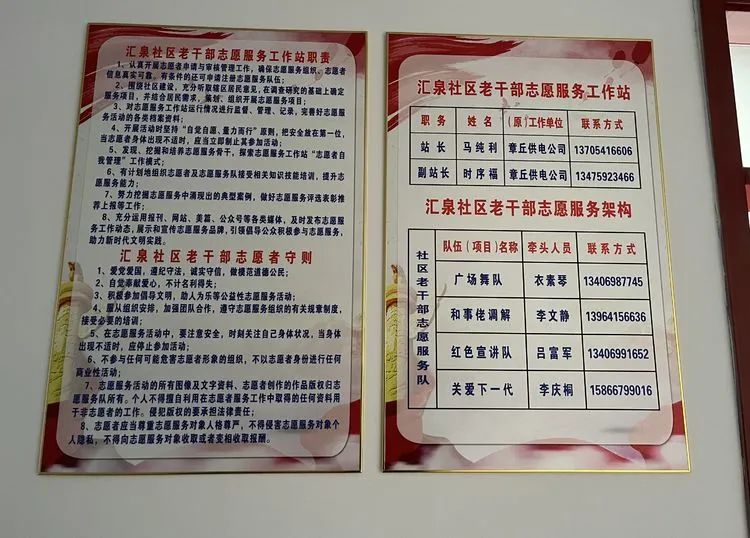 汇泉社区老干部志愿服务工作站职责
1、认真开展志愿者申请与审核管理工作，确保志愿服务组织、志愿者
信息真实可靠。有条件的还可申请注册志愿服务队伍；
2、围绕社区建设，充分听取辖区居民意见，在调查研究的基础上确定
服务项目，并结合居民需求，策划、组织开展志愿服务项目；
3、对志愿服务工作站运行情况进行监督、管理、记录，完善好志愿服
务活动的各类档案资料；
4、开展活动时坚持“自觉自愿、量力而行”原则，把安全放在第一位，
当志愿者身体出现不适时，应当立即制止其参加活动；
5、发现、挖掘和培养志愿服务骨干，探索志愿服务工作站“志愿者自
我管理”工作模式；
6、有计划地组织志愿者及志愿服务队接受相关知识技能培训，提升志
愿服务能力；
7、努力挖掘志愿服务中涌现出的典型案例，做好志愿服务评选表彰推
荐上报等工作；
8、充分运用报刊、网站、美篇、公众号等各类媒体，及时发布志愿服
务工作动态，展示和宣传志愿服务品牌，引领倡导公众积极参与志愿服务，
助力新时代文明实践。
汇泉社区老干部志愿者守则
1、爱党爱国，遵纪守法，诚实守信，做模范道德公民；
2、自觉奉献爱心，不计名利得失；
3、积极参加倡导文明，助人为乐等公益性志愿服务活动；
4、服从组织安排，加强团队合作，遵守志愿服务组织的有关规章制度，
接受必要的培训；
5、在志愿服务活动中，要注意安全，时刻关注自己身体状况，当身体
出现不适时，应停止参加活动；
6、不参与任何可能危害志愿者形象的组织，不以志愿者身份进行任何
商业性活动；
7、志愿服务活动的所有图像及文字资料、志愿者创作的作品版权归志
愿服务队所有。个人不得擅自利用在志愿者服务工作中取得的任何资料用
于非志愿者的工作。侵犯版权的要承担法律责任；
8、志愿者应当尊重志愿服务对象人格尊严，不得侵害志愿服务对象个
人隐私，不得向志愿服务对象收取或者变相收取报酬。
汇泉社区老干部志愿服务工作站
职务 姓名 （原）工作单位 联系方式
站长 马纯利 章丘供电公司 13705416606
副站长 时序福 章丘供电公司 13475923466
汇泉社区老干部志愿服务架构
社区老干部志愿服务队
队伍（项目）名称 牵头人员 联系方式
广场舞队 衣素琴 13406987745
和事佬调解 李文静 13964156636
红色宣讲队 吕富军 13406991652
关爱下一代 李庆桐 15866799016